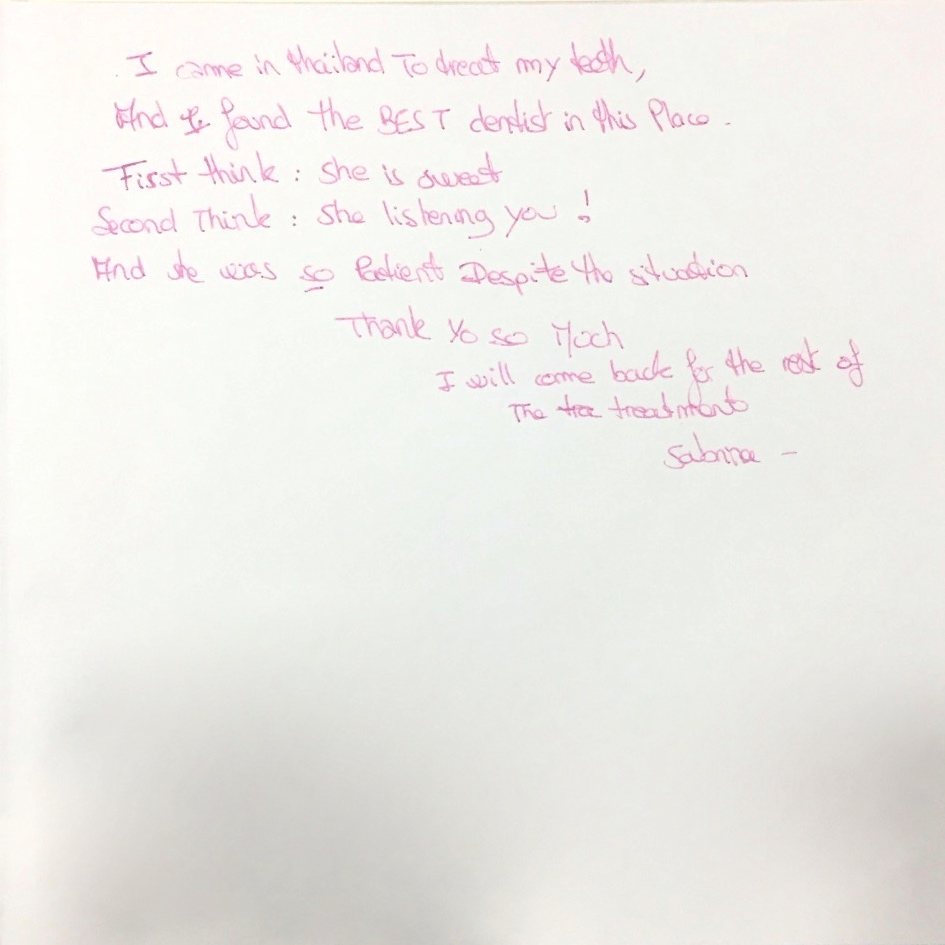 I came in thailand To treat my teeth,
And I found the BEST dentist in this Place.
First think : she is sweet
Second Think : She listening you !
And she was so Patient Despite the situation
Thank Yo so Much
I will come back for the rest of
The tree treatments